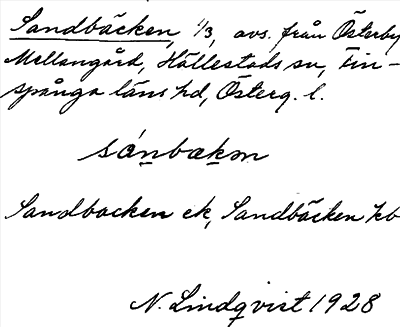 Sandbäcken, 1/3, avs. från Österby
Mellangård, Hällestads sn, Fin-
spånga läns hd, Österg. l.
sánbækm
Sandbacken ek, Sandbäcken kb
N. Lindqvist 1928